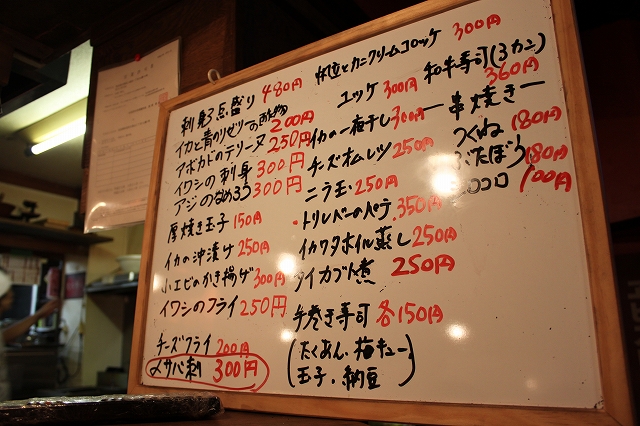 刺身3点盛り 480円
イカと青のりゼリーの酢の物 200円
アボカドのテリーヌ 250円
イワシの刺身 300円
アジのなめろう 300円
厚焼き玉子 150円
イカの沖漬け 250円
小エビのかき揚げ 300円
イワシのフライ 250円
チーズフライ 200円
〆サバ刺 300円
帆立とカニクリームコロッケ 300円
ユッケ 300円
イカの一夜干し 300円
チーズオムレツ 250円
ニラ玉 250円
・トリレバーのパテ 350円
イカワタホイル蒸し 250円
タイカブト煮 250円
手巻き寿司 各150円
(たくあん・梅キュー
玉子・納豆)
和牛寿司(3カン)
360円
ー串焼きー
つくね 180円
ぶたばら 180円
100円